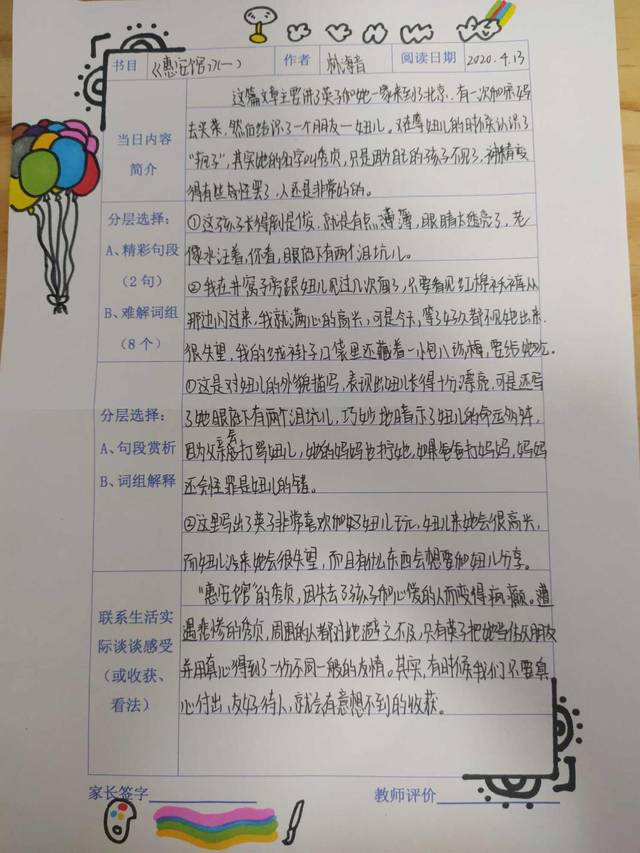 书目 《惠安馆》(一) 作者 林海音 阅读日期 2020.4.13
当日内容
简介
这篇文章主要讲了英子和她一家来到了北京.有一次和宋妈
去买菜,然后结识了一个朋友—妞儿。又在等妞儿的时候认识了
"疯子",其实她的名字叫秀贞,只是因为自己的孩子不见了,神精变
得有些奇怪罢了,人还是非常好的。
分层选择:
A、精彩句段
(2句)
B、难解词组
(8个)
①这孩子长得别是俊,就是有点薄薄,眼睛太透亮了,老
像水汪着,你看,眼底下有两个泪坑儿。
②我在井窝子旁跟妞儿见过几次面了,只要看见红棉袄裤从
那边闪过来,我就满心的高兴,可是今天,等了好久都不见她出来.
很失望,我的绒褂子口袋里还藏着一小包八珍梅,要给她吃。
分层选择:
A、句段赏析
B、词组解释
①这是对妞儿的外貌描写,表现出妞儿长得十分漂亮,可是还写
了她眼底下有两个泪坑儿,巧妙地暗示了妞儿的命运
因为父亲总打骂妞儿,她的妈妈也拧她,如果爸爸打妈妈,妈妈
还会怪罪是妞儿的错。
②这里写出了英子非常喜欢和妞儿玩,妞儿来她会很高兴,
而妞儿没来她会很失望,而且有什么东西会想要和妞儿分享。
联系生活实
际谈谈感受
(或收获、
看法)
"惠安馆"的秀贞,因失去了孩子和心爱的人而变得疯癫。遭
遇悲惨的秀贞,周围的人都对她避之不及,只有英子把她当作好朋友
并用真心得到了一份不同一般的友情。其实,有时候我们只要真
心付出,友好待人,就会有意想不到的收获。
家长签字 教师评价